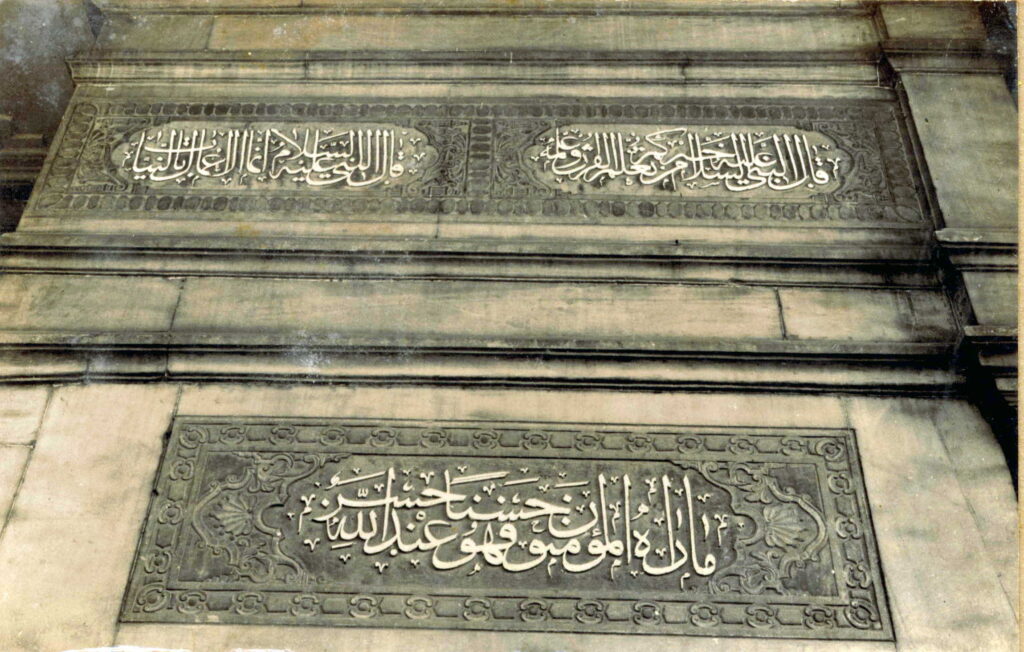 قال النبي عليه السلام خيركم من تعلم القرآن وعلمه
قال النبي عليه السلام انما الاعمال بالنيات
ما رآه المؤمنون حسنا فهو عند الله حسن